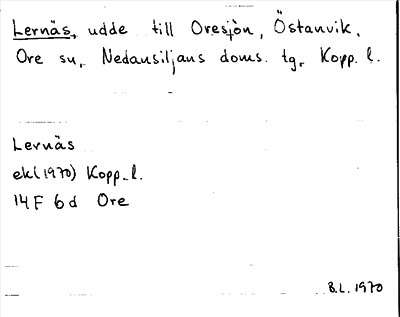 Lernäs, udde till Oresjön, Östanvik,
Ore sn, Nedansiljans doms. tg, Kopp. l.
Lernäs
ek (1970) Kopp. l.
14 F 6 d Ore
B.L. 1970